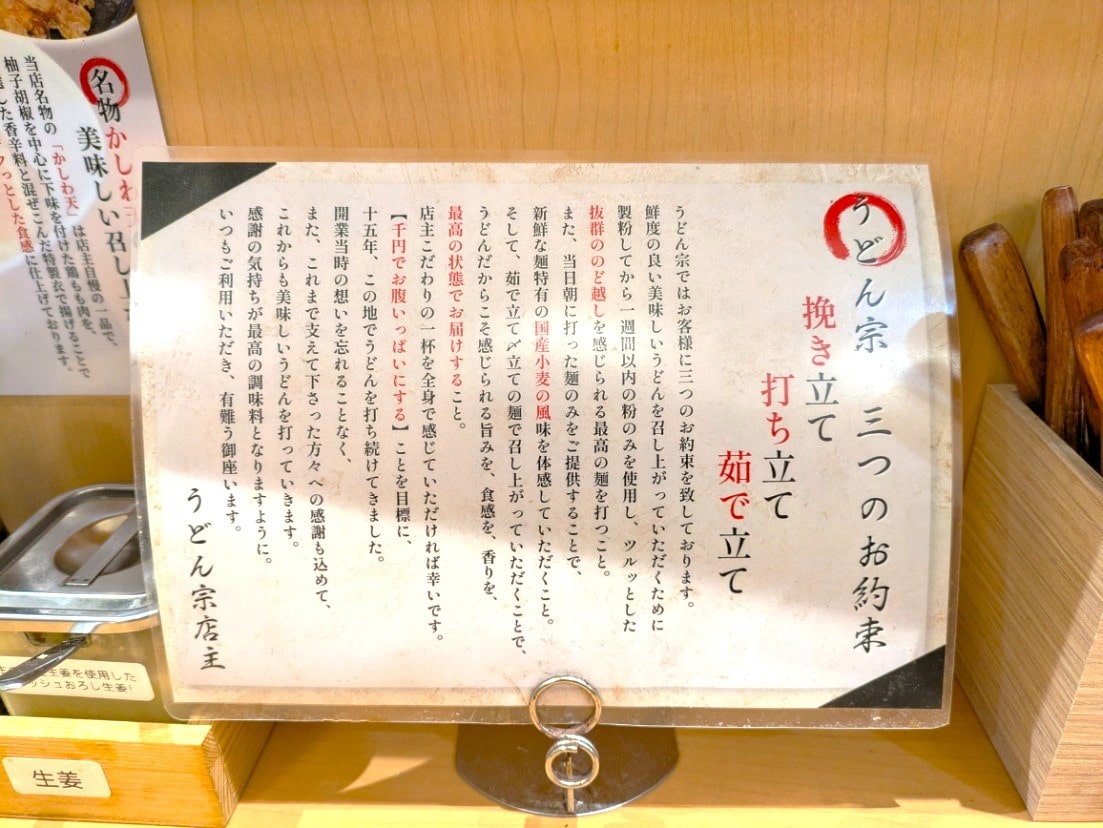 うどん宗 三つのお約束
挽き立て
打ち立て
茹で立て
うどん宗ではお客様に三つのお約束を致しております。
鮮度の良い美味しいうどんを召し上がっていただくために
製粉してから一週間以内の粉のみを使用し、ツルッとした
抜群ののど越しを感じられる最高の麺を打つこと。
また、当日朝に打った麺のみをご提供することで、
新鮮な麺特有の国産小麦の風味を体感していただくこと。
そして、茹で立て〆立ての麺で召し上がっていただくことで、
うどんだからこそ感じられる旨みを、食感を、香りを、
最高の状態でお届けすること。
店主こだわりの一杯を全身で感じていただければ幸いです。
【千円でお腹いっぱいにする】ことを目標に、
十五年、この地でうどんを打ち続けてきました。
開業当時の想いを忘れることなく、
また、これまで支えて下さった方々への感謝も込めて、
これからも美味しいうどんを打っていきます。
感謝の気持ちが最高の調味料となりますように。
いつもご利用いただき、有難う御座います。
うどん宗店主
名物かしわ
美味しい召し
当店名物の「かしわ天」は店主自慢の一品で、
柚子胡椒を中心に下味を付けた鶏もも肉を、
した香辛料と混ぜこんだ特製衣で揚げることで
っとした食感に仕上げております。
生姜を使用した
ッシュおろし生姜!
生姜